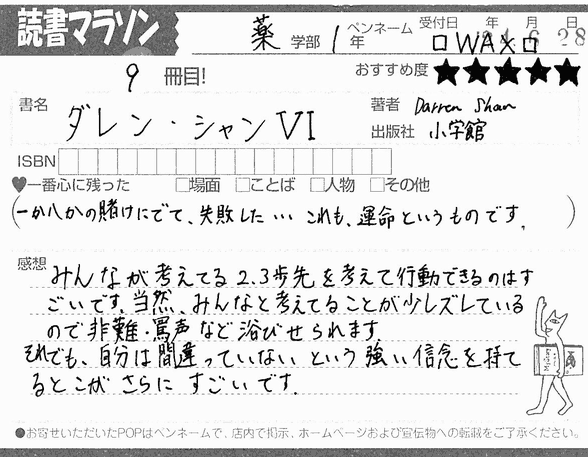 読書マラソン
薬 学部 1年 ペンネーム □WAX□ 受付日 年 月 日
6 28
9 冊目! おすすめ度 ★★★★★
書名 ダレン・シャン VI
著者 Darren Shan
出版社 小学館
ISBN
♥一番心に残った □場面 □ことば □人物 □その他
(一か八かの賭けにでて、失敗した… これも、運命というものです。)
感想
みんなが考えてる2.3歩先を考えて行動できるのはす
ごいです。当然、みんなと考えてることが少しズレている
ので非難・罵声など浴びせられます。
それでも、自分は間違っていないという強い信念を持て
るとこがさらにすごいです。
●お寄せいただいたPOPはペンネームで、店内で掲示、ホームページおよび宣伝物への転載をご了承ください。